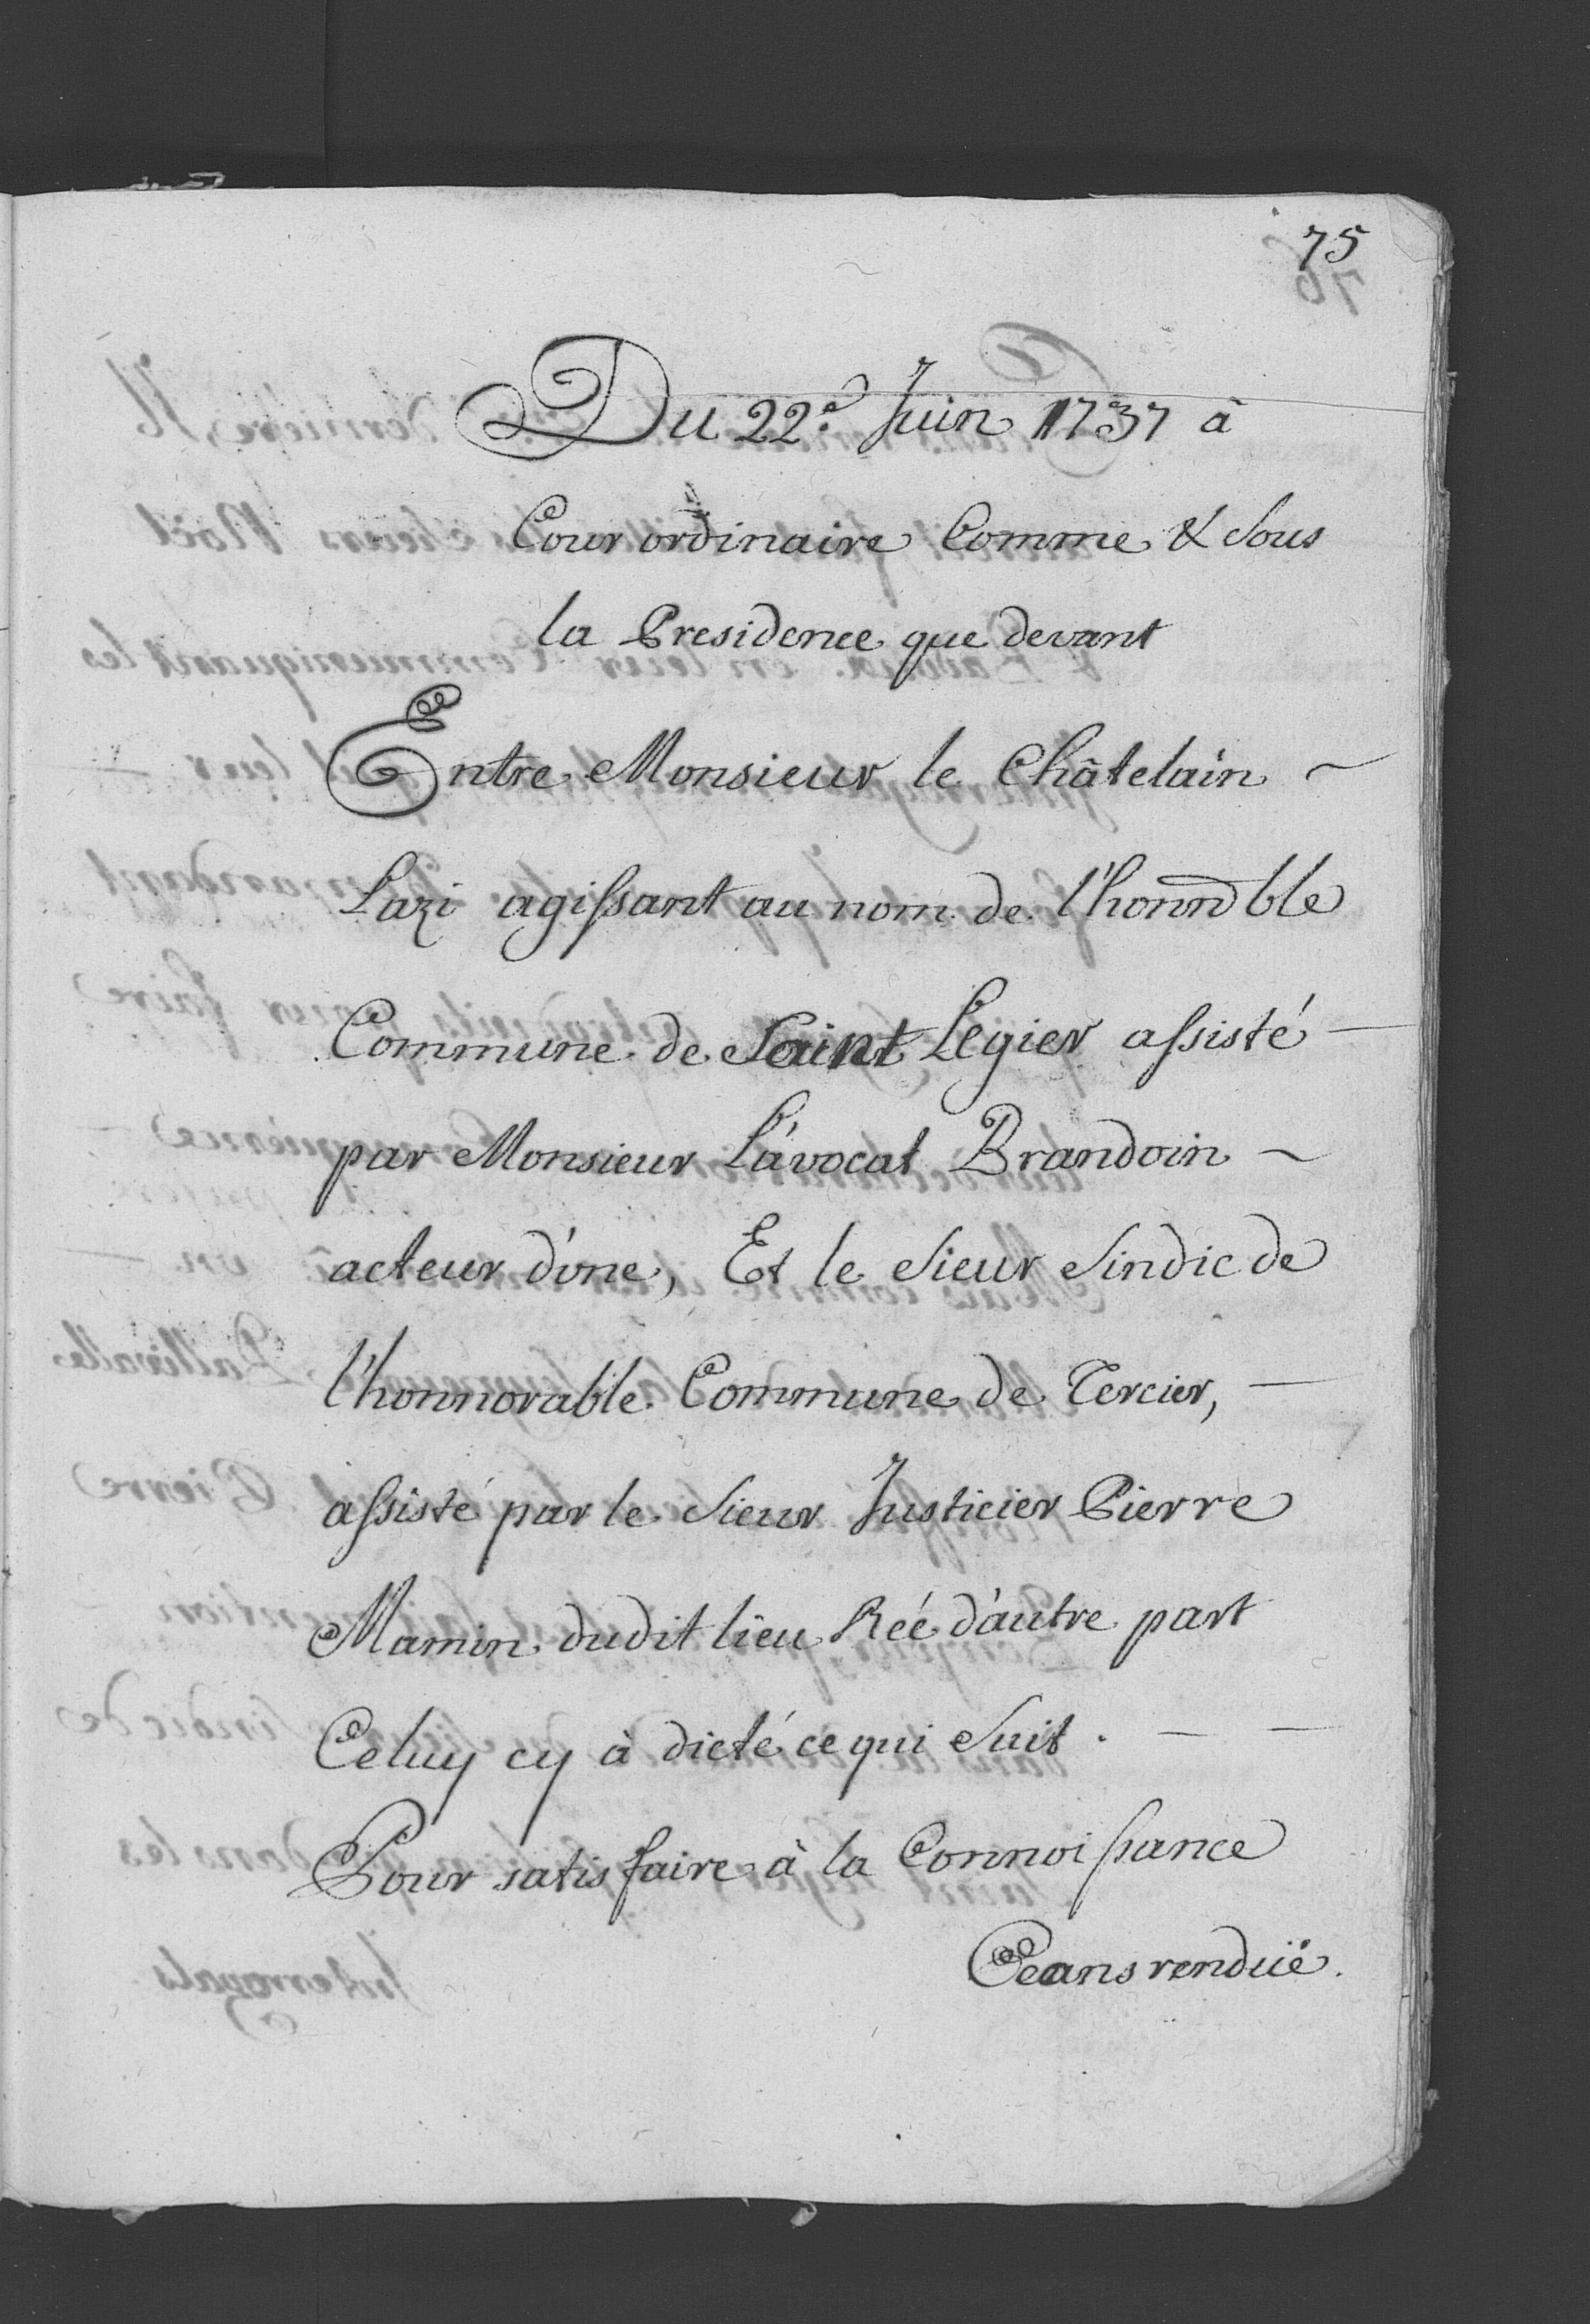 75
Du 22.e Juin 1737 à
Cour ordinaire Comme & Sous
la Presidence que devant
Entre Monsieur le Châtelain ~
Lazi agissant au nom de l'honnoble
Commune de Saint Legier assisté —
par Monsieur L'avocat Brandoin ~
acteur d'une, Et le Sieur Sindic de
l'honnorable Commune de Tercier, —
assisté par le Sieur Justicier Pierre
Mamin dudit lieu Reé d'autre part
Celuy cy à dicté ce qui Suit . — —
Pour satisfaire à la Connoissance
Ceans renduë.